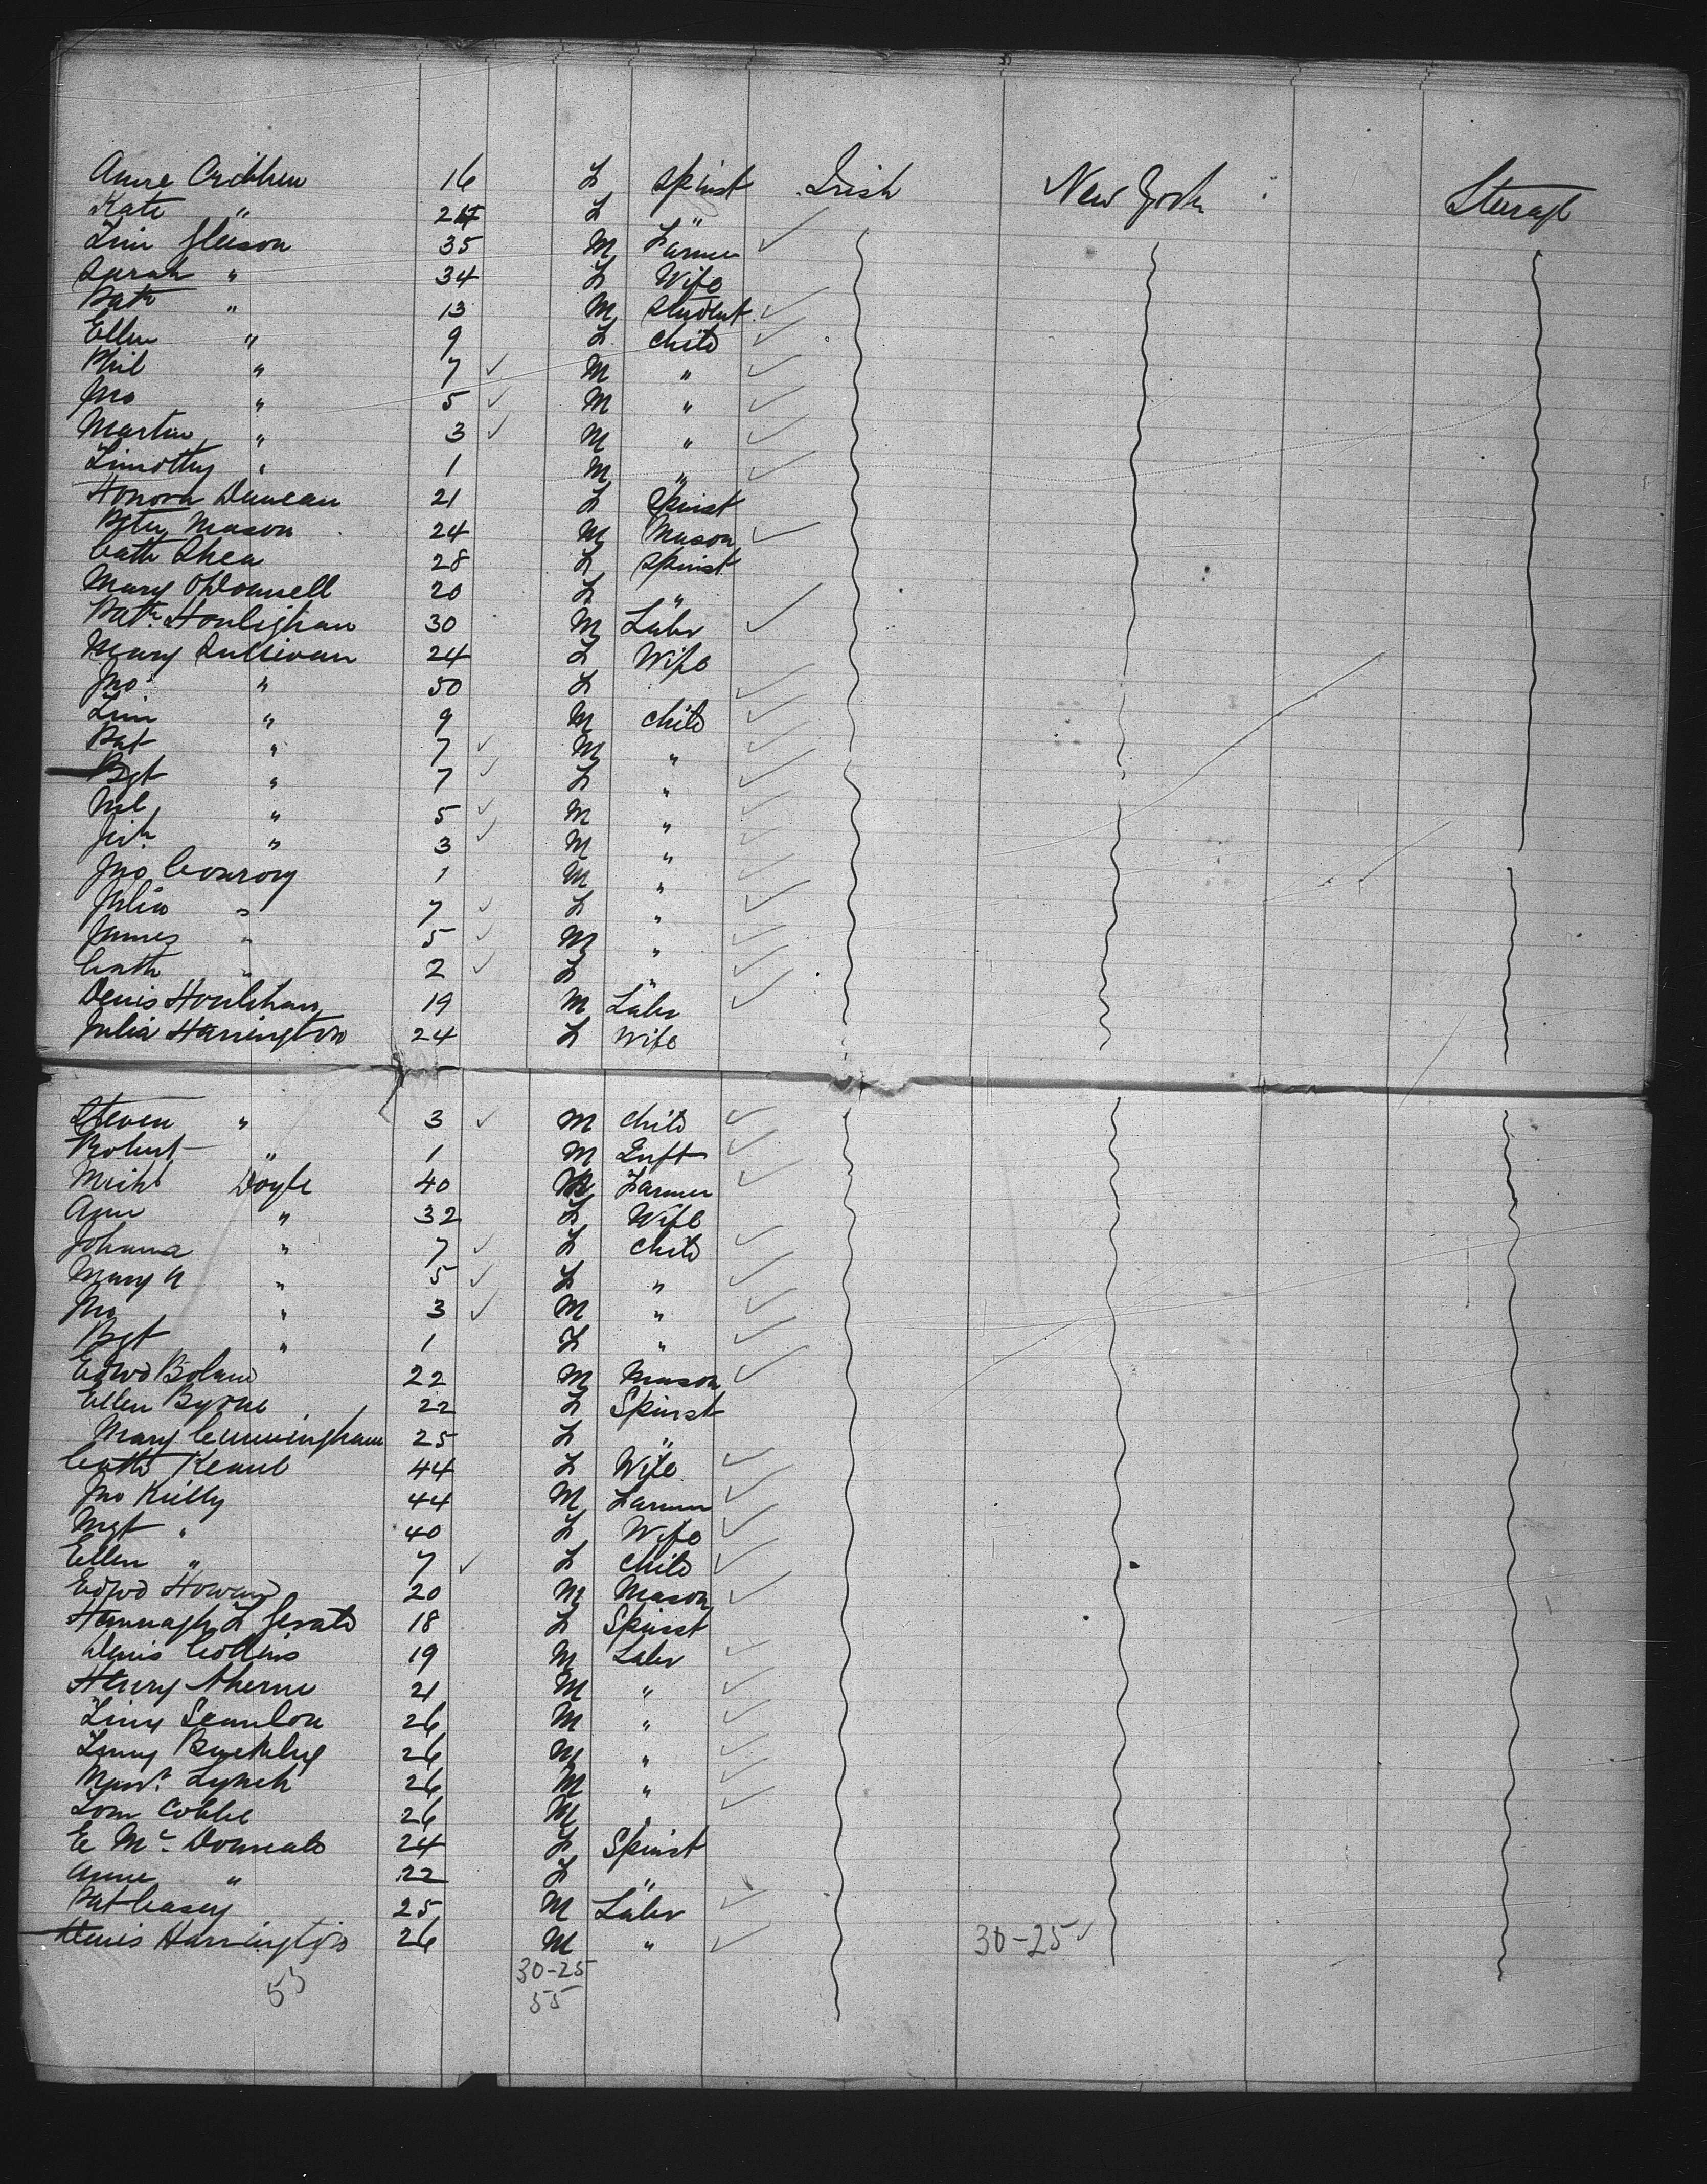 Anne Cribben 16 F Spinst Irish New York Steerage
Kate " 24 F "
Tim Gleeson 35 M Farmer
Sarah " 34 F Wife
Patk " 13 M Student
Ellen " 9 F Child
Phil " 7 M "
Jno " 5 M "
Martin " 3 M "
Timothy " 1 M "
Honora Duncan 21 F Spinst
Peter Mason 24 M Mason
Cath Shea 28 F Spinst
Mary O'Donnell 20 F "
Patk Houlighan 30 M Labr
Mary Sullivan 24 F Wife
Jno " 50 F
Tim " 9 M Child
Pat " 7 M "
Bgt " 7 F "
Ml " 5 M "
" 3 M "
Jno Conroy 1 M "
Julia " 7 F "
James " 5 M "
Cath " 2 F "
Denis Houlihan 19 M Labr
Julia Harrington 24 F Wife
Steven " 3 M Child
Robert " 1 M Inft
Michl Doyle 40 M Farmer
Ann " 32 F Wife
Johanna " 7 F Child
Mary A " 5 F "
Jno " 3 M "
Bgt " 1 F "
Edwd Boland 22 M Mason
Ellen Byrne 22 F Spinst
Mary Cunningham 25 F "
Cath Keane 44 F Wife
Jno Kielly 44 M Farmer
Mgt " 40 F Wife
Ellen " 7 F Child
Edwd Howard 20 M Mason
Hannagh F Gerald 18 F Spinst
Denis Collins 19 M Labr
Henry Aherne 21 M "
Timy Scanlon 26 M "
Timy Buckley 26 M "
Maur. Lynch 26 M "
Tom Cobbe 26 M "
E McDonnald 24 F Spinst
Anne " 22 F "
Pat Casey 25 M Labr
Denis Harrington 26 M " 30-25
55 30-25
55